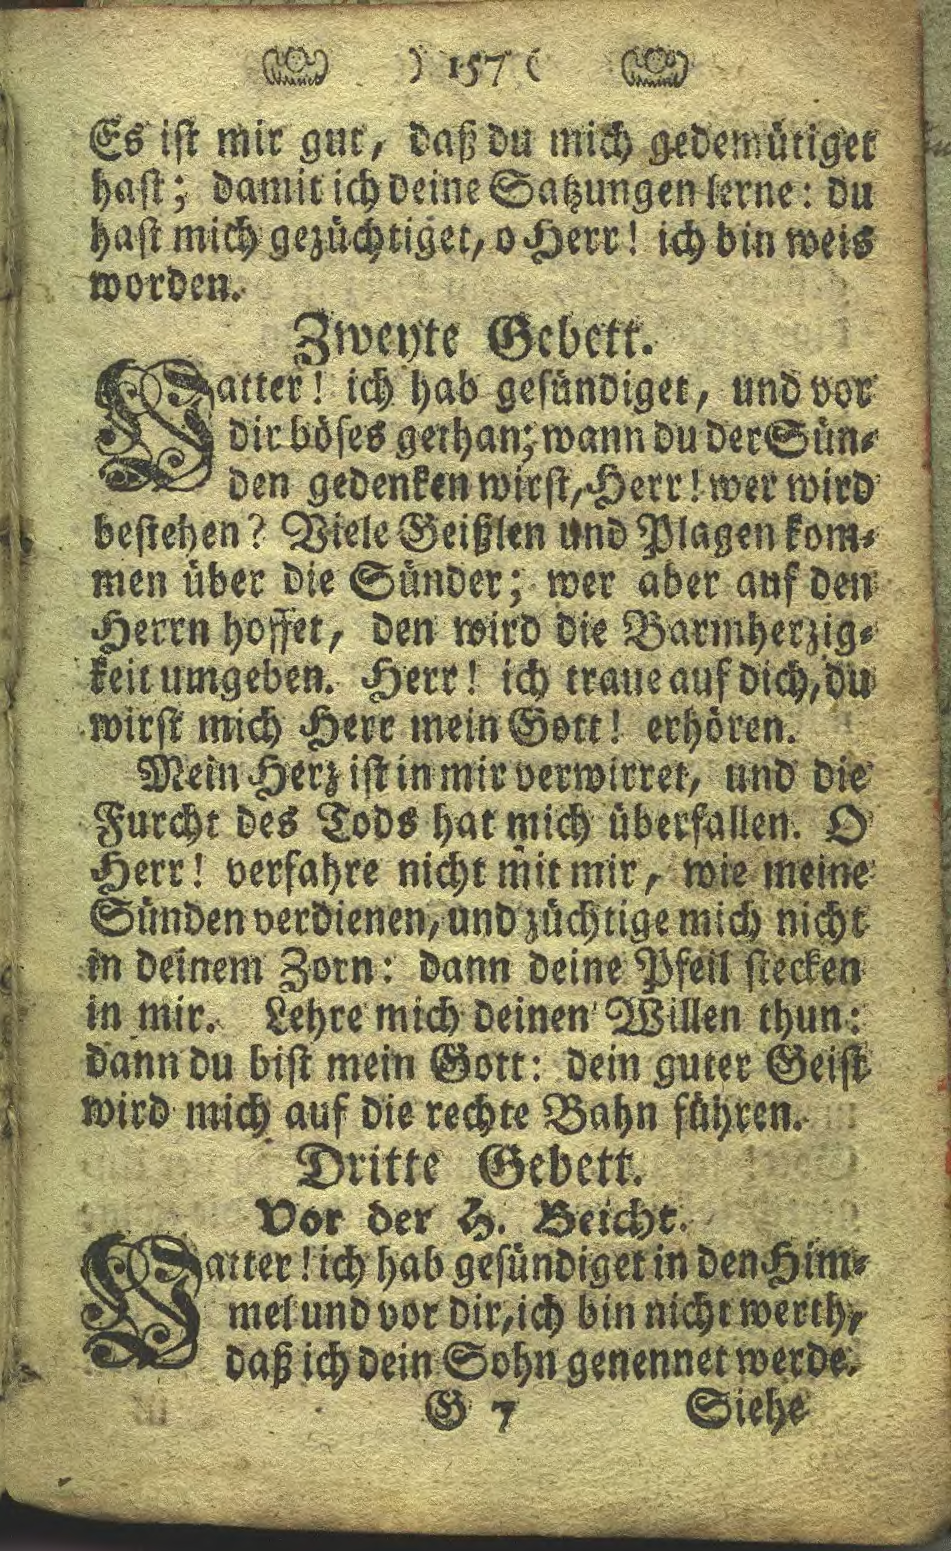 ) 157 (
Es ist mir gut, daß du mich gedemütiget
hast; damit ich deine Satzungen lerne: du
hast mich gezüchtiget, o Herr! ich bin weis
worden.
Zweyte Gebett.
Vatter! ich hab gesündiget, und vor
dir böses gethan; wann du der Sün-
den gedenken wirst, Herr! wer wird
bestehen? Viele Geißlen und Plagen kom-
men über die Sünder; wer aber auf den
Herrn hoffet, den wird die Barmherzig-
keit umgeben. Herr! ich traue auf dich, du
wirst mich Herr mein Gott! erhören.
Mein Herz ist in mir verwirret, und die
Furcht des Tods hat mich überfallen. O
Herr! verfahre nicht mit mir, wie meine
Sünden verdienen, und züchtige mich nicht
in deinem Zorn: dann deine Pfeil stecken
in mir. Lehre mich deinen Willen thun:
dann du bist mein Gott: dein guter Geist
wird mich auf die rechte Bahn führen.
Dritte Gebett.
Vor der H. Beicht.
Vatter! ich hab gesündiget in den Him-
mel und vor dir, ich bin nicht werth,
daß ich dein Sohn genennet werde.
G 7 Siehe